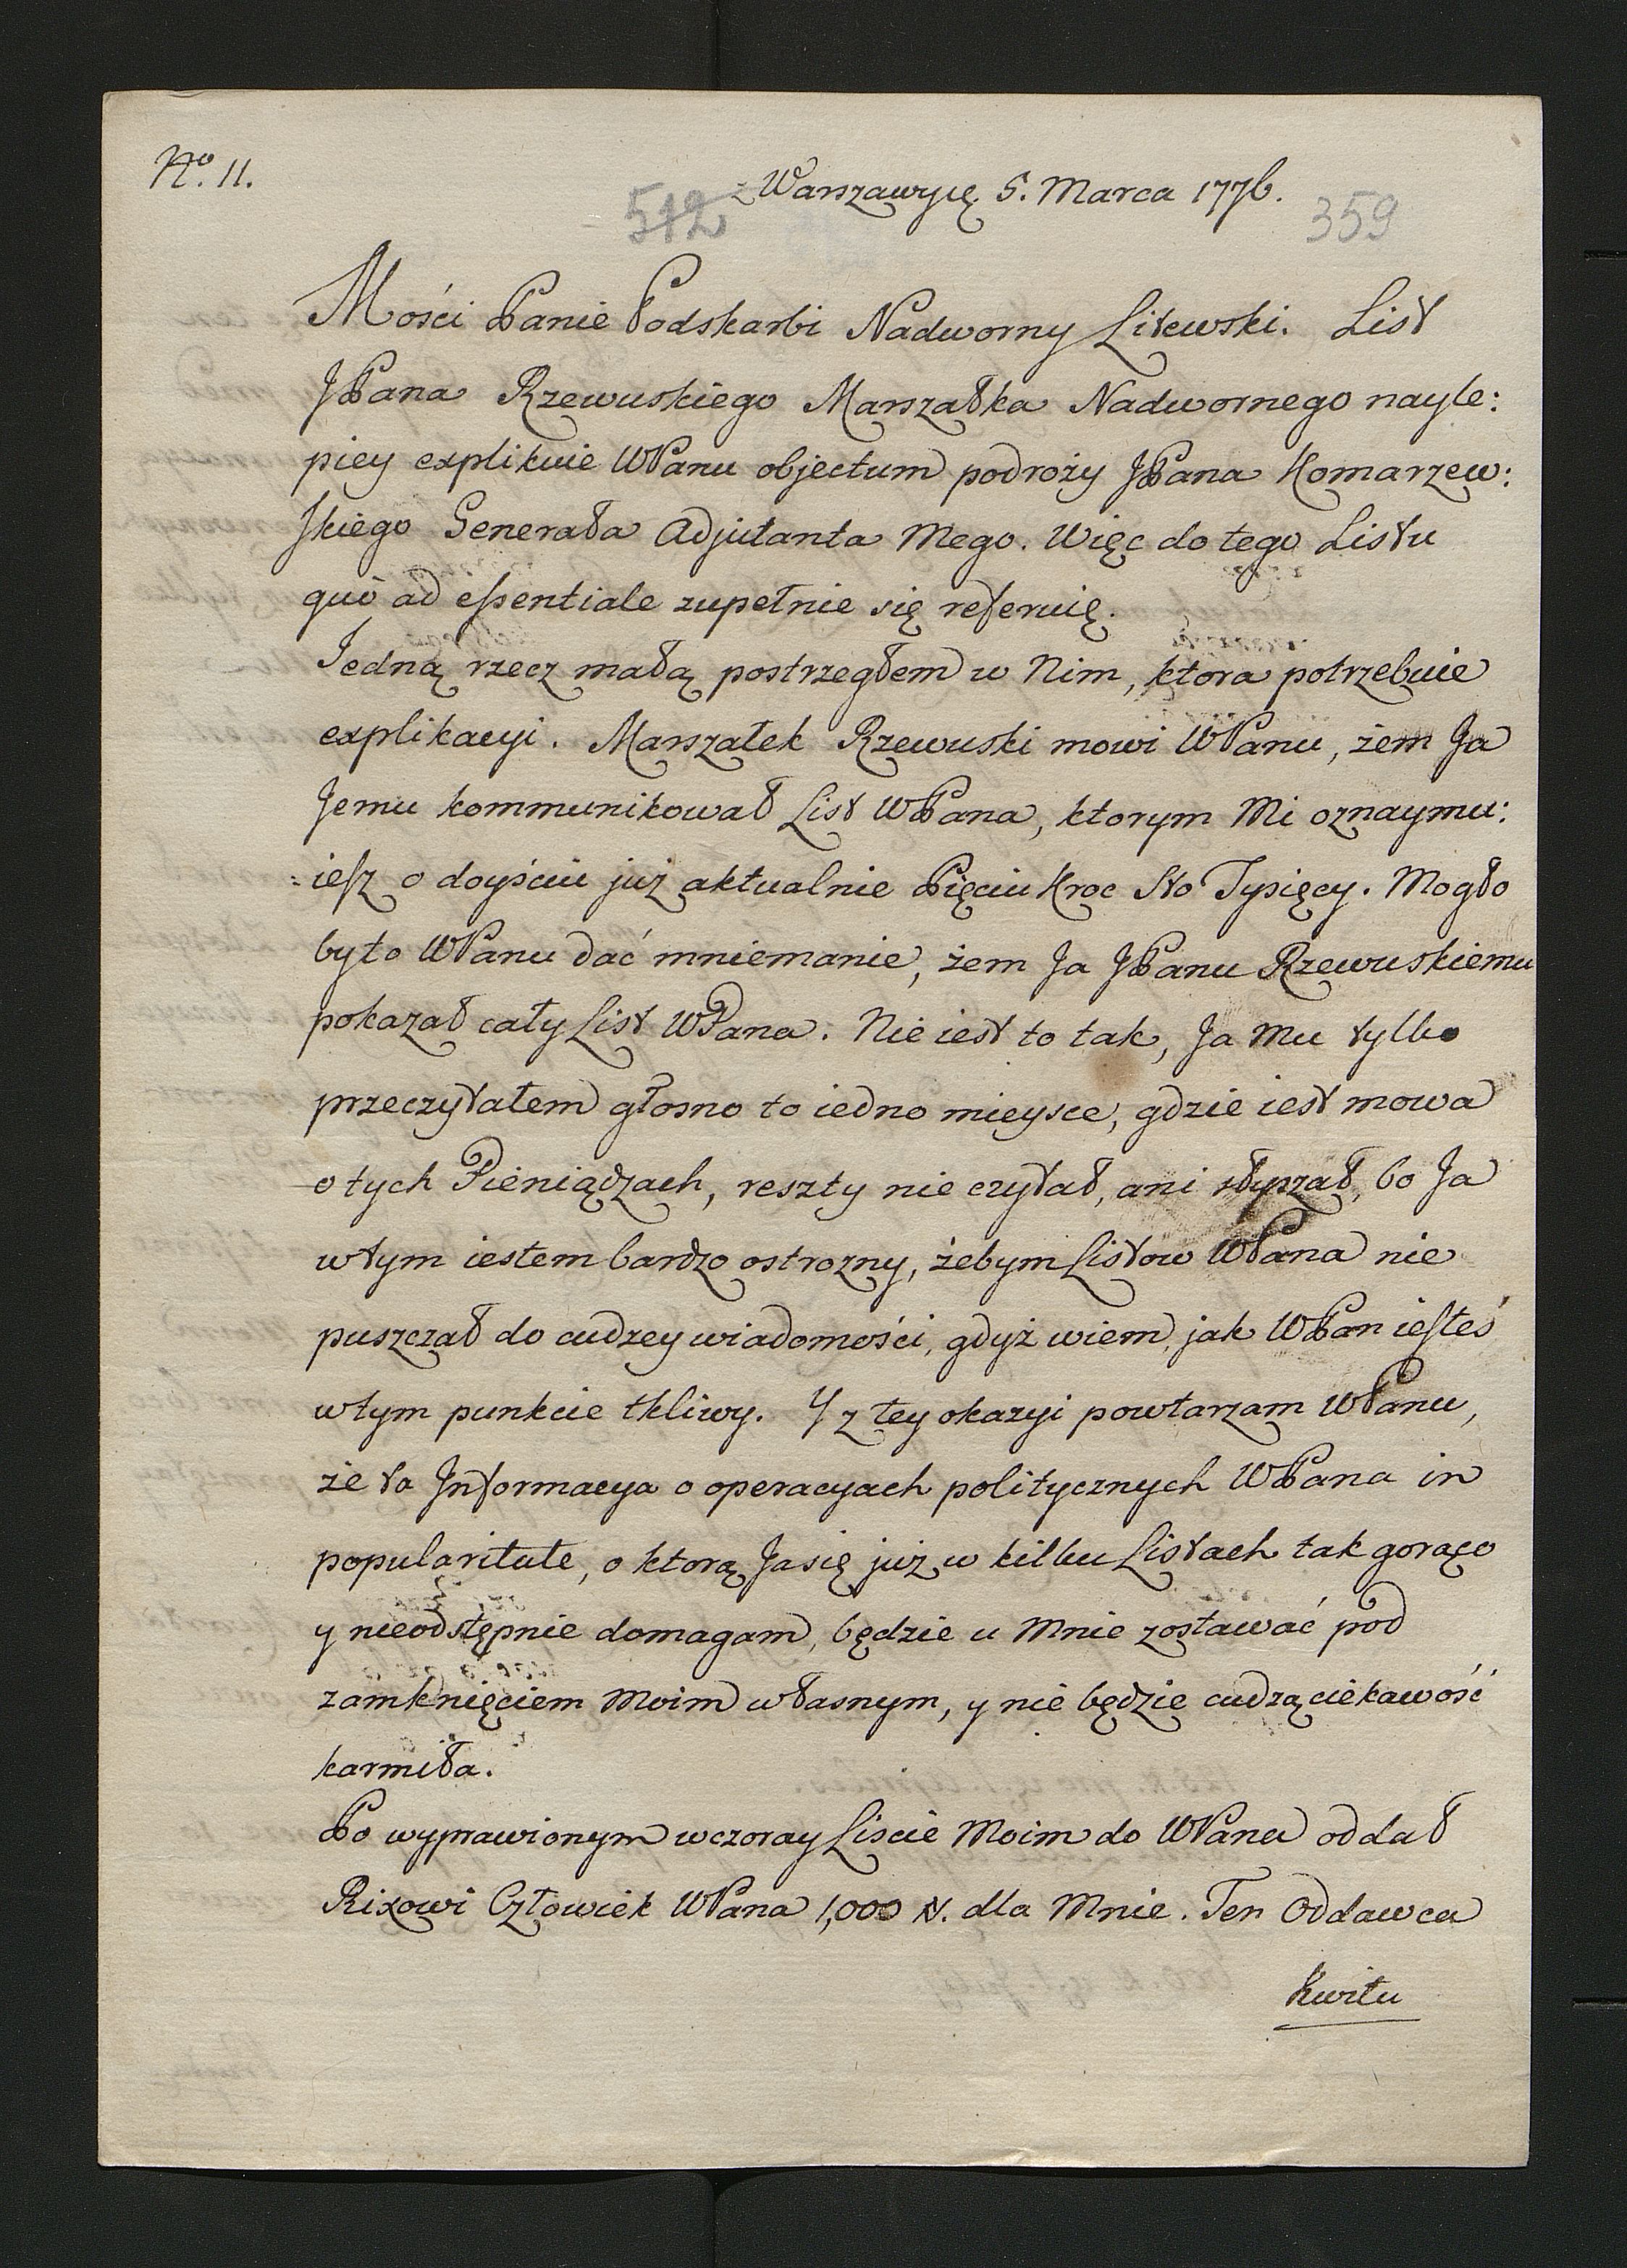 No. 11.
z Warszawy 5. Marca 1776.
512 359
Mości Panie Podskarbi Nadworny Litewski. List
JPana Rzewuskiego Marszałka Nadwornego nayle:
piey explikuie WPanu objectum podroży JPana Komarzew:
skiego Generała Adjutanta Mego. Więc do tego Listu
quò ad essentiale zupełnie się referuię.
Jedną rzecz małą postrzegłem w Nim, ktora potrzebuie
explikacyi. Marszałek Rzewuski mowi WPanu, żem Ja
Jemu kommunikował List WPana, ktorym Mi oznaymu:
:iesz o doyściu już aktualnie Pięciu Kroć Sto Tysięcy. Mogło
było WPanu dać mniemanie, żem Ja JPanu Rzewuskiemu
pokazał cały List WPana. Nie iest to tak, Ja Mu tylko
przeczytałem głosno to iedno mieysce, gdzie iest mowa
o tych Pieniądzach, reszty nie czytał, ani słyszał, bo Ja
w tym iestem bardzo ostrozny, żebym Listow WPana nie
puszczał do cudzey wiadomości, gdyż wiem, jak WPan iesteś
w tym punkcie tkliwy. Y z tey okazyi powtarzam WPanu,
że ta Informacya o operacyach politycznych WPana in
popularitate, o ktorą Ja się już w kilku Listach tak gorąco
y nieodstępnie domagam, będzie u Mnie zostawać pod
zamknięciem Moim własnym, y nie będzie cudzą ciekawość
karmiła.
Po wyprawionym wczoray Liscie Moim do WPana oddał
Rixowi Człowiek WPana 1,000 #. dla Mnie. Ten Oddawca
Kwitu